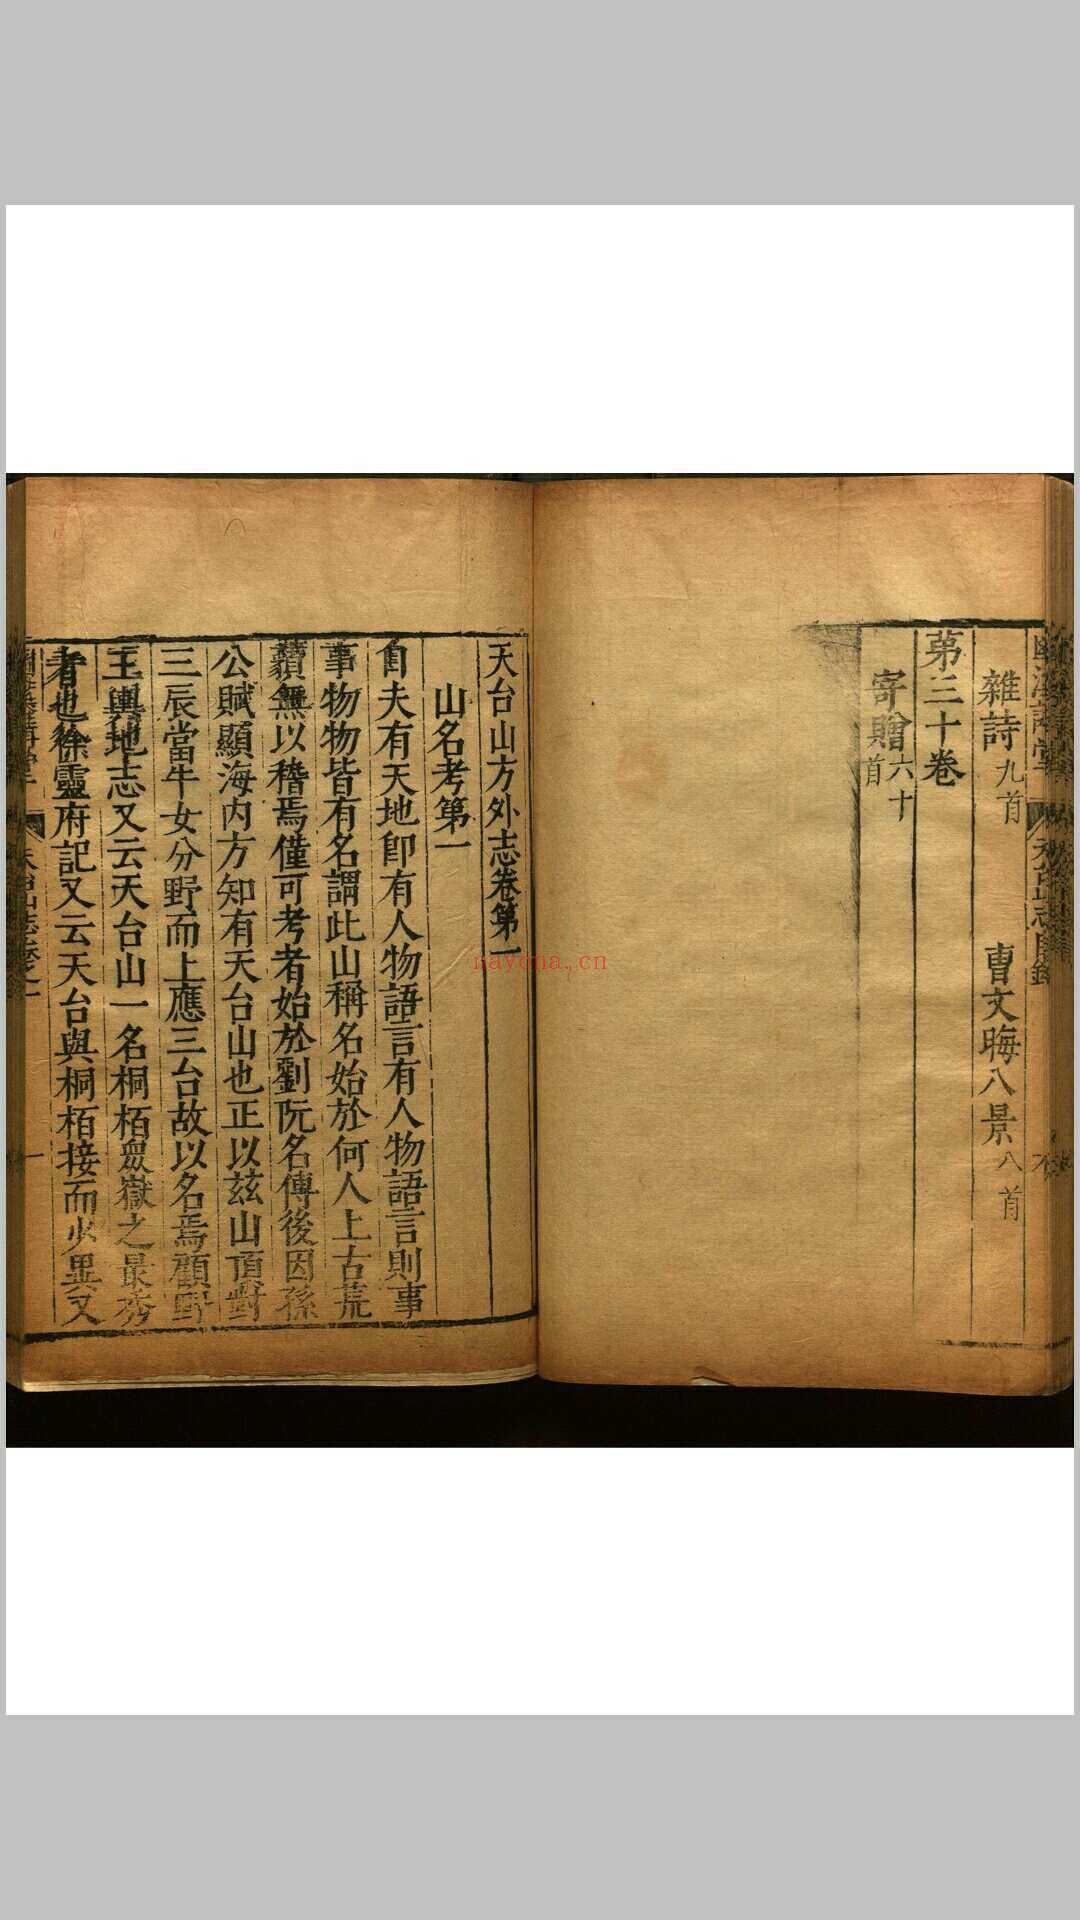 雜詩九首　曹文晦八景八首
第三十卷
寄贈六十首
天台山方外志卷第一
山名考第一
自夫有天地即有人物語言有人物語言則事
事物物皆有名謂此山稱名始於何人上古荒
藐無以稽焉僅可考者始於劉阮名傳後因孫
公賦顯海内方知有天台山也正以玆山頂對
三辰當牛女分野而上應三台故以名焉顧野
王輿地志又云天台山一名桐栢衆嶽之最秀
者也徐靈府記又云天台與桐栢接而少異又
nayona.cn